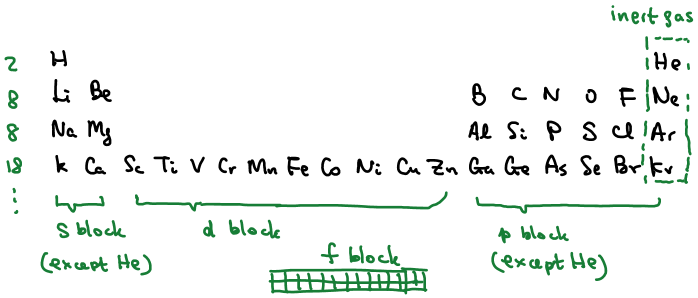 inert gas
2 H He
8 Li Be B C N O F Ne
8 Na Mg Al Si P S Cl Ar
18 K Ca Sc Ti V Cr Mn Fe Co Ni Cu Zn Ga Ge As Se Br Kr
s block d block p block
(except He) f block (except He)